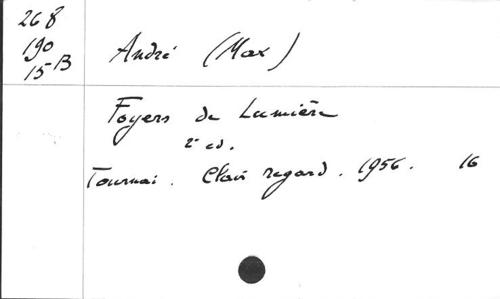 268
190
15-B
André (Max)
Foyers de Lumière
2e ed.
Tournai. Clair regard. 1956. 16